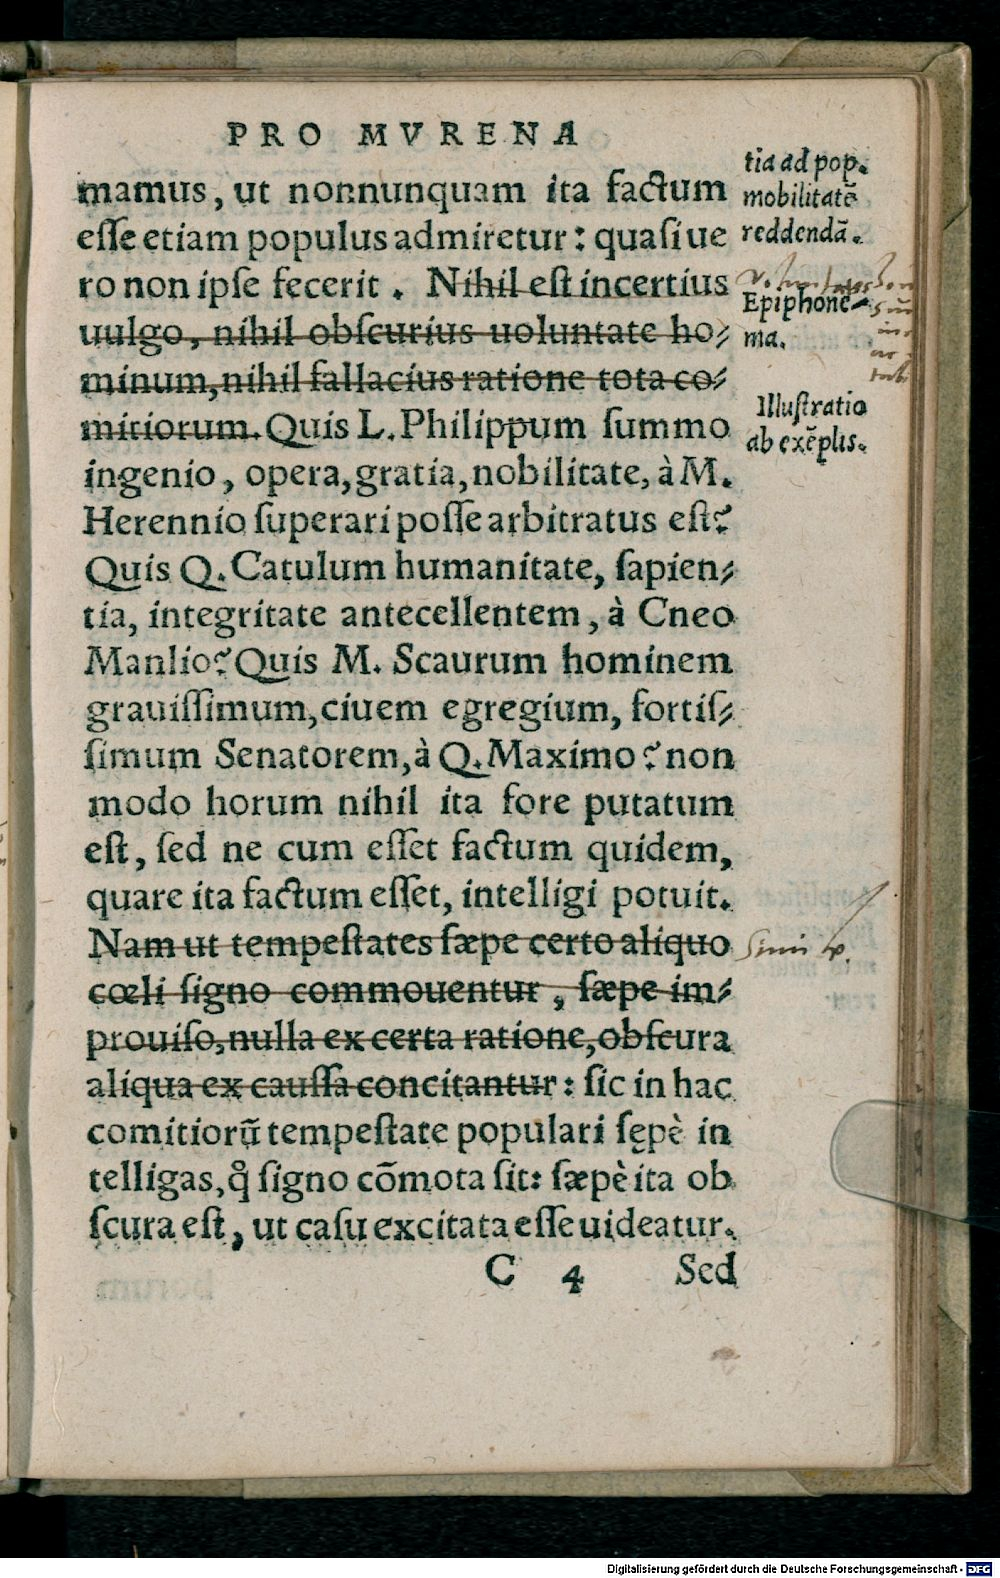 PRO MVRENA
mamus, ut nonnunquam ita factum
esse etiam populus admiretur: quasi ue
ro non ipse fecerit. Nihil est incertius
uulgo, nihil obscurius uoluntate ho-
minum, nihil fallacius ratione tota co-
mitiorum. Quis L. Philippum summo
ingenio, opera, gratia, nobilitate, à M.
Herennio superari posse arbitratus est?
Quis Q. Catulum humanitate, sapien-
tia, integritate antecellentem, à Cneo
Manlio? Quis M. Scaurum hominem
grauissimum, ciuem egregium, fortis-
simum Senatorem, à Q. Maximo? non
modo horum nihil ita fore putatum
est, sed ne cum esset factum quidem,
quare ita factum esset, intelligi potuit.
Nam ut tempestates sæpe certo aliquo
cœli signo commouentur, sæpe im-
prouiso, nulla ex certa ratione, obscura
aliqua ex caussa concitantur: sic in hac
comitiorũ tempestate populari sępè in
telligas, q̃ signo cõmota sit: sæpè ita ob
scura est, ut casu excitata esse uideatur.
C 4 Sed
tia ad pop.
mobilitatẽ
reddendã.
Epiphone-
ma.
Illustratio
ab exẽplis.
Digitalisierung gefördert durch die Deutsche Forschungsgemeinschaft - DFG